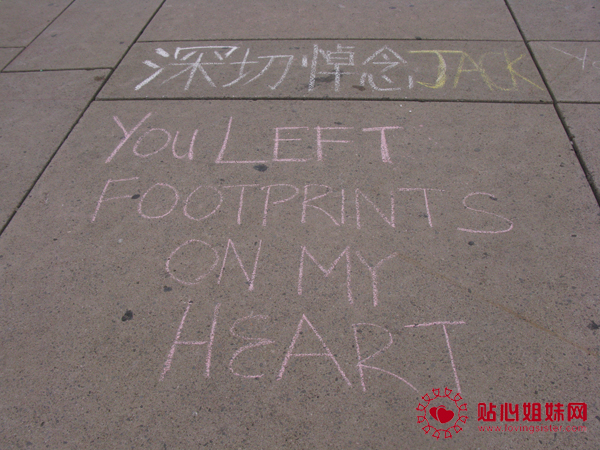 深切悼念JACK
YOU LEFT
FOOTPRINTS
ON MY
HEART
贴心姐妹网